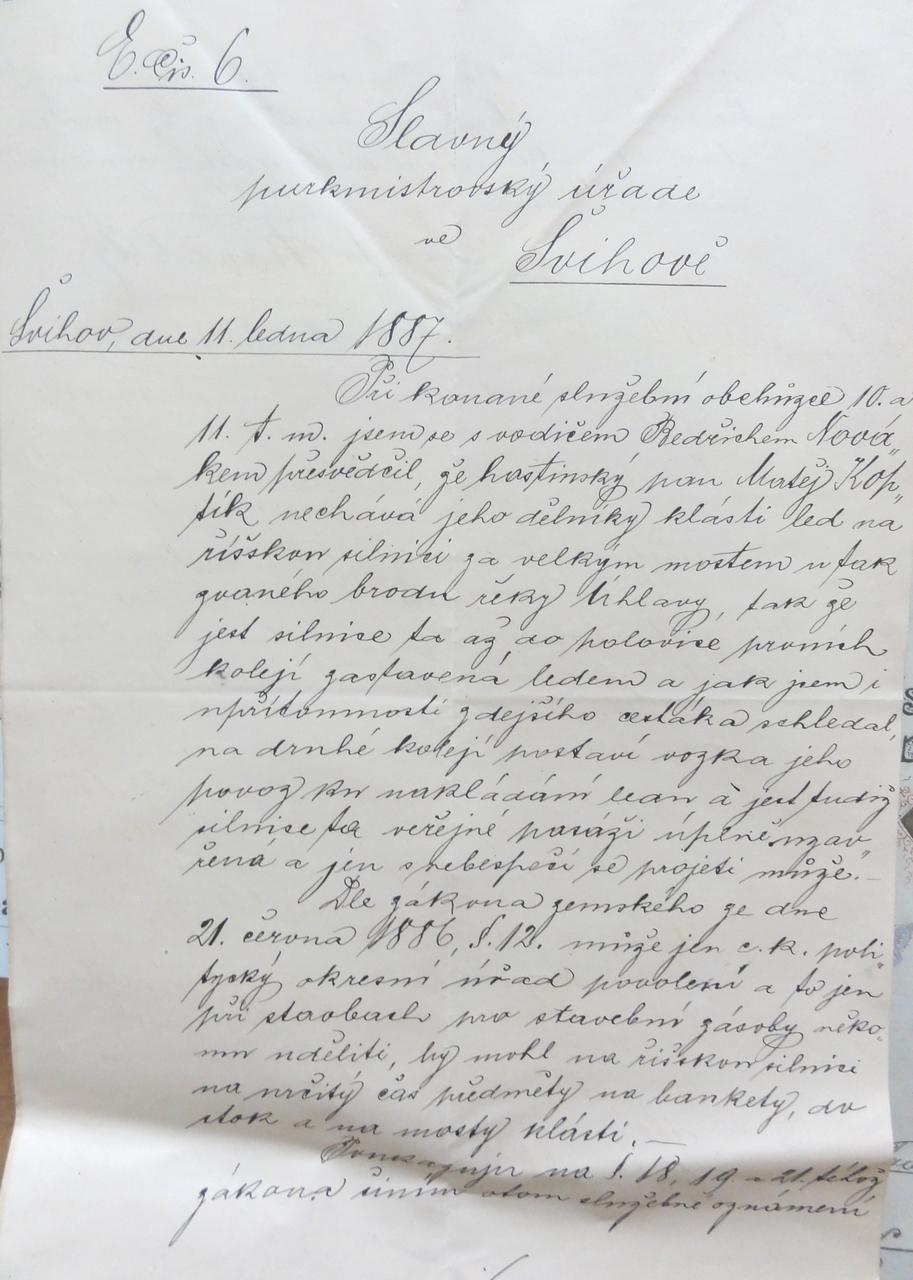 E. čís. 6.
Slavný
purkmistrovský úřade
ve
Švihově
Švihov, dne 11. ledna 1887.
Při konané služební obchůzce 10. a
11. t. m. jsem se s vodičem Bedřichem Nová„
kem přesvědčil, že hostinský pan Matěj Kop„
tík nechává jeho dělníky klásti led na
říšskou silnici za velkým mostem u tak
zvaného brodu řeky Úhlavy, tak že
jest silnice ta až do polovice prvních
kolejí zastavená ledem a jak jsem i
upřítomnosti zdejšího cestáka schledal,
na druhé kolejí postaví vozka jeho
povoz ku nakládání ledu a jest tudíž
silnice ta veřejné pasáži úplně uzav„
řená a jen s nebespečí se projeti může. —
Dle zákona zemského ze dne
21. června 1886, §. 12. může jen c. k. poli„
tycký okresní úřad povolení a to jen
při stavbach pro stavební zásoby něko„
mu uděliti, by mohl na říšskou silnici
na určitý čas předměty na bankety, do
stok a na mosty klásti. —
Poukazuju na §. 18, 19. a 21. téhož
zákona činím otom služebně oznámení